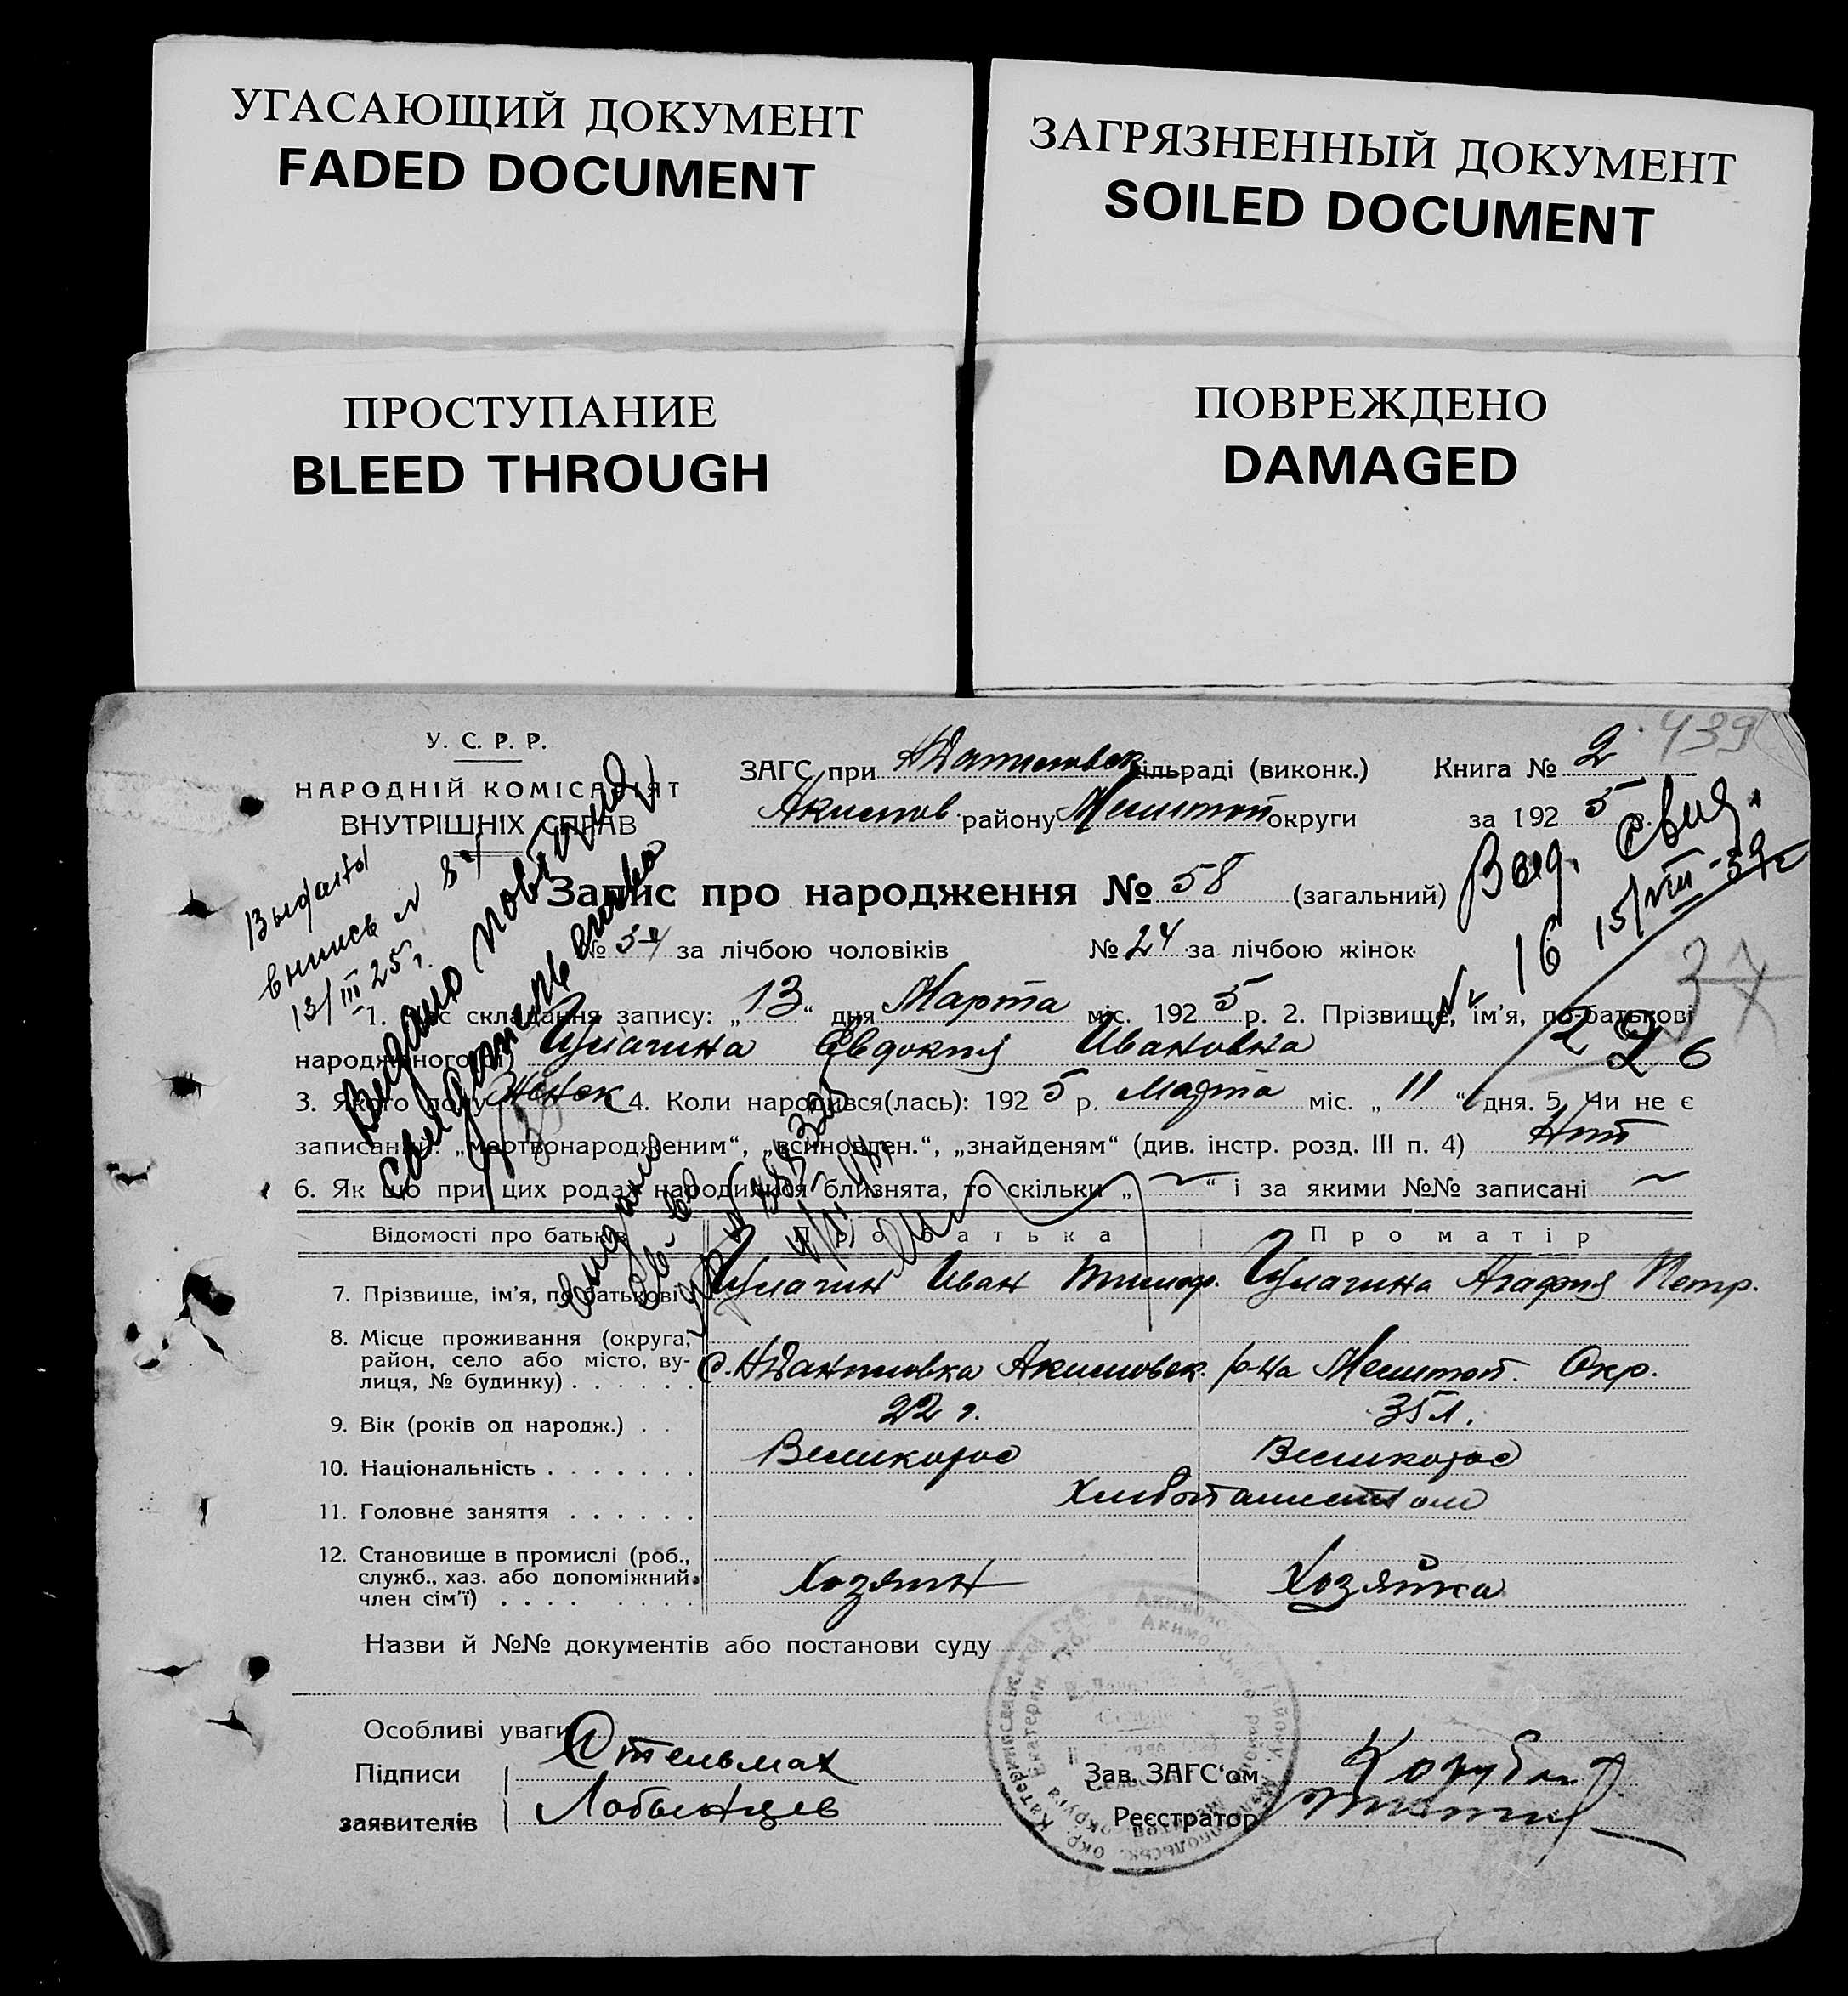 УГАСАЮЩИЙ ДОКУМЕНТ
FADED DOCUMENT
ЗАГРЯЗНЕННЫЙ ДОКУМЕНТ
SOILED DOCUMENT
ПРОСТУПАНИЕ
BLEED THROUGH
ПОВРЕЖДЕНО
DAMAGED
У. С. Р. Р.
НАРОДНІЙ КОМІСАРІЯТ
ВНУТРІШНІХ СПРАВ
439
ЗАГС при НДаниловск сільраді (виконк.) Книга № 2
Акимов. району Мелитоп округи за 1925 р.
Запис про народження № 58 (загальний)
№ 34 за лічбою чоловіків № 24 за лічбою жінок
Выдана
выпись № 84
13/III 25 г.
Видано повторно
свидетельство
Выд. Свид.
№ 16 15/VIII-39 г
37
226
1. Час складання запису: „13“ дня Марта міс. 1925 р. 2. Прізвище, ім’я, по-батькові
народженого Чулагина Евдокия Ивановна
3. Якого полу Женск 4. Коли народився(лась): 1925 р. Марта міс. „11“ дня. 5. Чи не є
записаний: „мертвонародженим“, „всиновлен.“, „знайденям“ (див. інстр. розд. III п. 4) Нет
6. Як що при цих родах народилися близнята, то скільки „~“ і за якими №№ записані ~
Видано
Відомості про батьків Про батька Про матір
7. Прізвище, ім’я, по батькові Чулагин Иван Тимоф. Чулагина Агафия Петр.
8. Місце проживання (округа,
район, село або місто, ву-
лиця, № будинку) . . . . . . с. НДаниловка Акимовск. р-на Мелитоп. Окр.
9. Вік (років од народж.) . . 22 г. 35 л.
10. Національність . . . . . . . Великорос Великорос
11. Головне заняття . . . . . . Хлебопашеством
12. Становище в промислі (роб.,
служб., хаз. або допоміжний
член сім’ї) . . . . Хозяин Хозяйка
Назви й №№ документів або постанови суду
Особливі уваги
Підписи Стельмах Зав. ЗАГС‘ом
заявителів Лобынцев Реєстратор